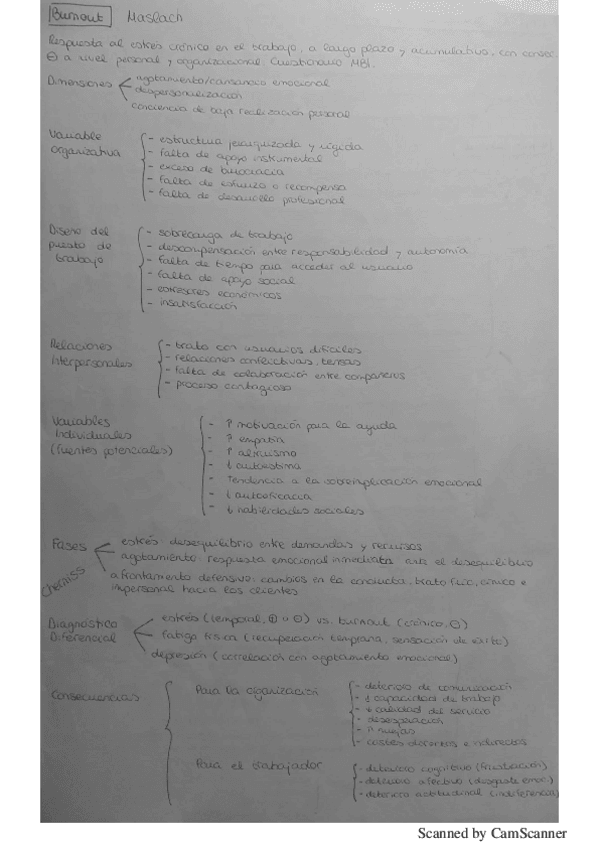 Burnout Maslach
Respuesta al estrés crónico en el trabajo, a largo plazo y acumulativo, con consec.
⊖ a nivel personal y organizacional. Cuestionario MBI.
Dimensiones
agotamiento/cansancio emocional
despersonalización
conciencia de baja realización personal
Variable organizativa
- estructura jerarquizada y rígida
- falta de apoyo instrumental
- exceso de burocracia
- falta de refuerzo o recompensa
- falta de desarrollo profesional
Diseño del puesto de trabajo
- sobrecarga de trabajo
- descompensación entre responsabilidad y autonomía
- falta de tiempo para acceder al usuario
- falta de apoyo social
- estresores económicos
- insatisfacción
Relaciones interpersonales
- trato con usuarios difíciles
- relaciones conflictivas, tensas
- falta de colaboración entre compañeros
- proceso contagioso
Variables individuales (fuentes potenciales)
- ↑ motivación para la ayuda
- ↑ empatía
- ↑ altruismo
- ↓ autoestima
- Tendencia a la sobreimplicación emocional
- ↓ autoeficacia
- ↓ habilidades sociales
Fases
Cherniss
estrés: desequilibrio entre demandas y recursos
agotamiento: respuesta emocional inmediata ante el desequilibrio
afrontamiento defensivo: cambios en la conducta, trato frío, cínico e
impersonal hacia los clientes
Diagnóstico Diferencial
estrés (temporal, ⊕ o ⊖) vs. burnout (crónico, ⊖)
fatiga física (recuperación temprana, sensación de éxito)
depresión (correlación con agotamiento emocional)
Consecuencias
Para la organización
- deterioro de comunicación
- ↓ capacidad de trabajo
- ↓ calidad del servicio
- desesperación
- ↑ quejas
- costes directos e indirectos
Para el trabajador
- deterioro cognitivo (frustración)
- deterioro afectivo (desgaste emoc.)
- deterioro actitudinal (indiferencia)
Scanned by CamScanner